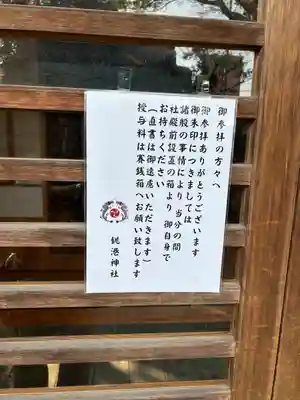 御参拝の方々へ
御参拝ありがとうございます
御朱印につきましては
諸般の事情により 当分の間
社殿前設置の箱より 御自身で
お持ちください
(直書は御遠慮いただきます)
授与料は賽銭箱へお願い致します
銚港神社